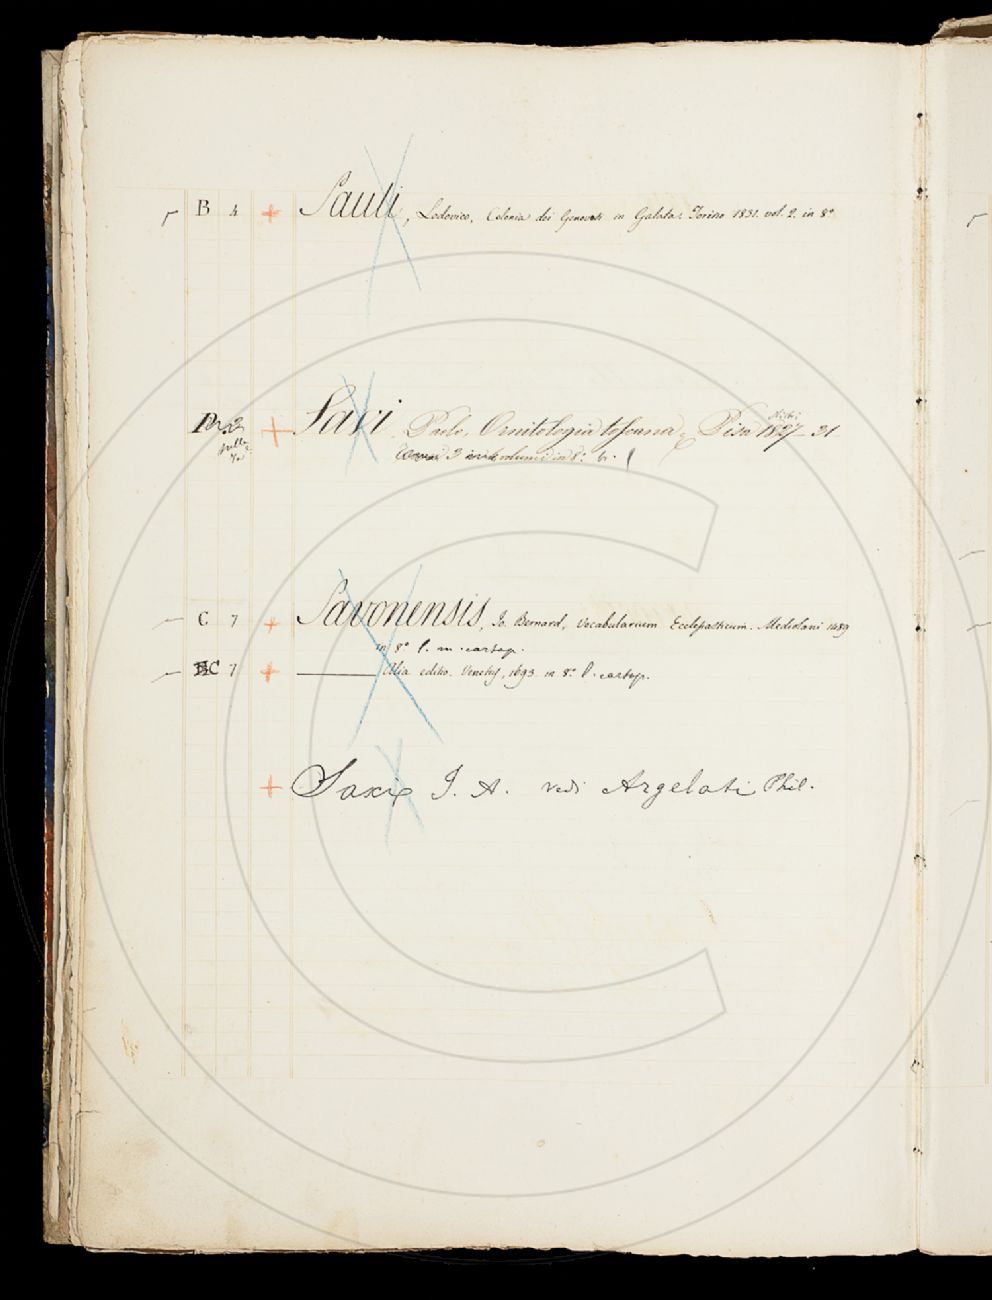 B 4 + Sauli, Lodovico, Colonia dei Genovesi in Galata. Torino 1831. vol. 2. in 8º
Nistri
+ Savi Paolo, Ornitologia toscana, Pisa 1827 - 31
3 volumi in 8º. br.
C 7 + Savonensis, Jo. Bernard, Vocabularium Ecclesiasticum. Mediolani 1489
in 8º l. m. cartap.
C 7 + ——— Alia editio. Venetijs, 1693. in 8º l. cartap.
+ Saxi J. A. vedi Argelati Phil.